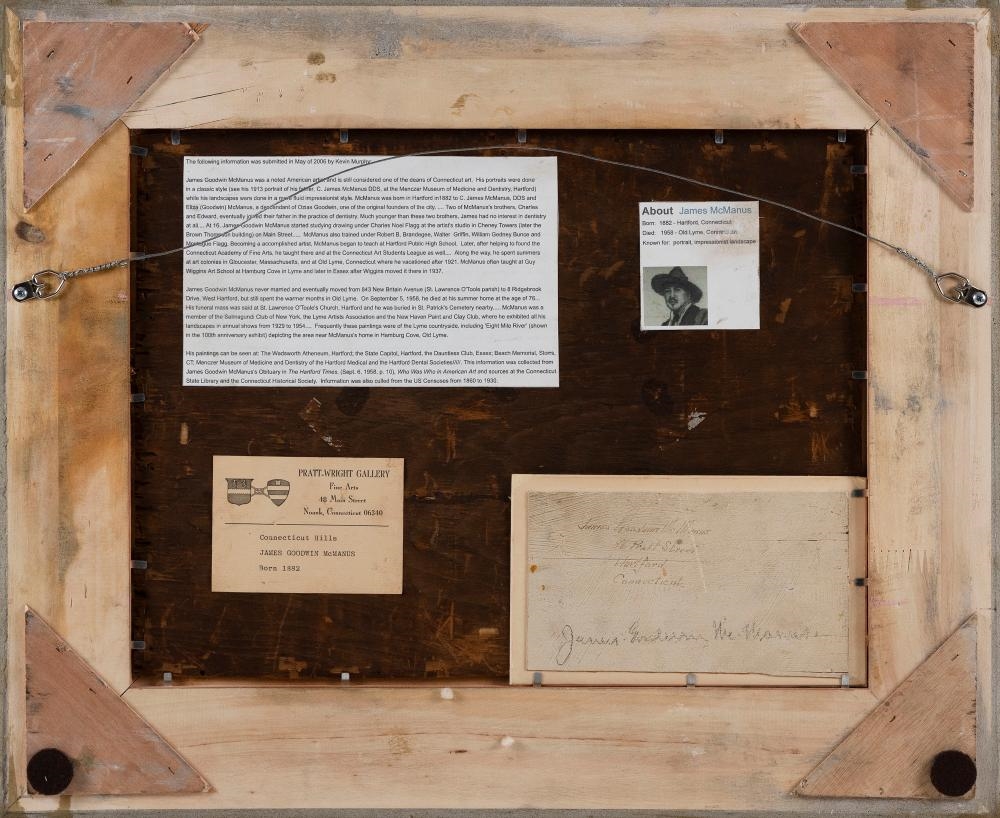 The following information was submitted in May of 2006 by Kevin Murphy.
James Goodwin McManus was a noted American artist and is still considered one of the deans of Connecticut art. His portraits were done
in a classic style (see his 1913 portrait of his father, C. James McManus DDS, at the Menczer Museum of Medicine and Dentistry, Hartford)
while his landscapes were done in a more fluid impressionist style. McManus was born in Hartford in1882 to C. James McManus, DDS and
Eliza (Goodwin) McManus, a descendant of Ozias Goodwin, one of the original founders of the city. .... Two of McManus's brothers, Charles
and Edward, eventually joined their father in the practice of dentistry. Much younger than these two brothers, James had no interest in dentistry
at all.... At 16, James Goodwin McManus started studying drawing under Charles Noel Flagg at the artist's studio in Cheney Towers (later the
Brown Thompson building) on Main Street.... McManus also trained under Robert B. Brandegee, Walter Griffin, William Gedney Bunce and
Montague Flagg. Becoming a accomplished artist, McManus began to teach at Hartford Public High School. Later, after helping to found the
Connecticut Academy of Fine Arts, he taught there and at the Connecticut Art Students League as well.... Along the way, he spent summers
at art colonies in Gloucester, Massachusetts, and at Old Lyme, Connecticut where he vacationed after 1921. McManus often taught at Guy
Wiggins Art School at Hamburg Cove in Lyme and later in Essex after Wiggins moved it there in 1937.
James Goodwin McManus never married and eventually moved from 843 New Britain Avenue (St. Lawrence O'Toole parish) to 8 Ridgebrook
Drive, West Hartford, but still spent the warmer months in Old Lyme. On September 5, 1958, he died at his summer home at the age of 76...
His funeral mass was said at St. Lawrence O'Toole's Church, Hartford and he was buried in St. Patrick's Cemetery nearby..... McManus was a
member of the Salmagundi Club of New York, the Lyme Artists Association and the New Haven Paint and Clay Club, where he exhibited all his
landscapes in annual shows from 1929 to 1954.... Frequently these paintings were of the Lyme countryside, including 'Eight Mile River' (shown
in the 100th anniversary exhibit) depicting the area near McManus's home in Hamburg Cove, Old Lyme.
His paintings can be seen at: The Wadsworth Atheneum, Hartford; the State Capitol, Hartford, the Dauntless Club, Essex; Beach Memorial, Storrs,
CT; Menczer Museum of Medicine and Dentistry of the Hartford Medical and the Hartford Dental Societies/////. This information was collected from
James Goodwin McManus's Obituary in The Hartford Times, (Sept. 6, 1958, p. 10), Who Was Who in American Art and sources at the Connecticut
State Library and the Connecticut Historical Society. Information was also culled from the US Censuses from 1860 to 1930.
About James McManus
Born: 1882 - Hartford, Connecticut
Died: 1958 - Old Lyme, Connecticut
Known for: portrait, impressionist landscape
PRATT-WRIGHT GALLERY
Fine Arts
48 Main Street
Noank, Connecticut 06340
Connecticut Hills
JAMES GOODWIN McMANUS
Born 1882
James Goodwin McManus
Pratt Street
Hartford
Connecticut
James Goodwin McManus